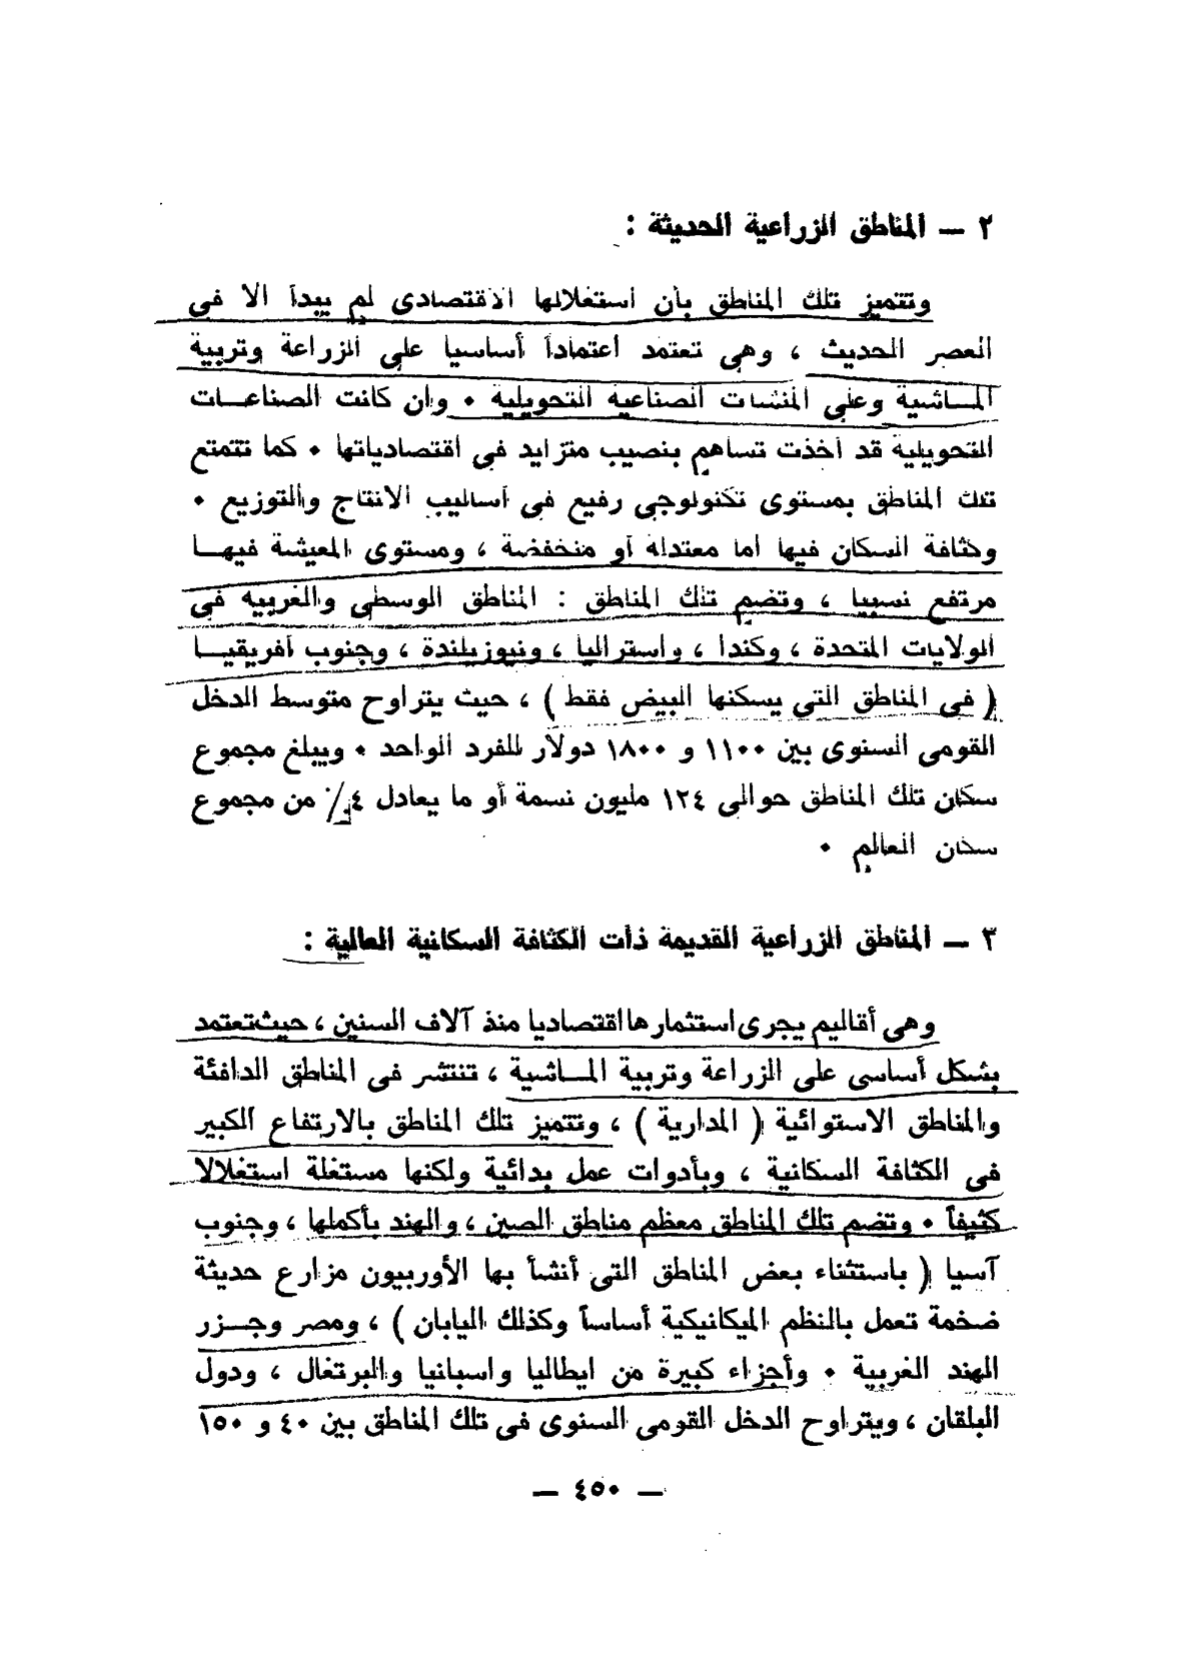 ٢ — المناطق الزراعية الحديثة :
وتتميز تلك المناطق بأن استغلالها الاقتصادى لم يبدأ الا فى
العصر الحديث ، وهى تعتمد اعتماداً أساسيا على الزراعة وتربية
المــاشية وعلى المنشات الصناعية التحويلية • وان كانت الصناعــات
التحويلية قد أخذت تساهم بنصيب متزايد فى اقتصادياتها • كما تتمتع
تلك المناطق بمستوى تكنولوجى رفيع فى أساليب الانتاج والتوزيع •
وكثافة السكان فيها اما معتدلة أو منخفضة ، ومستوى المعيشة فيهــا
مرتفع نسبيا ، وتضم تلك المناطق : المناطق الوسطى والغربية فى
الولايات المتحدة ، وكندا ، واستراليا ، ونيوزيلندة ، وجنوب أفريقيــا
( فى المناطق التى يسكنها البيض فقط ) ، حيث يتراوح متوسط الدخل
القومى السنوى بين ١١٠٠ و ١٨٠٠ دولار للفرد الواحد • ويبلغ مجموع
سكان تلك المناطق حوالى ١٢٤ مليون نسمة أو ما يعادل ٤٪ من مجموع
سكان العالم •
٣ — المناطق الزراعية القديمة ذات الكثافة السكانية العالية :
وهى أقاليم يجرى استثمارها اقتصاديا منذ آلاف السنين ، حيث تعتمد
بشكل أساسى على الزراعة وتربية المــاشية ، تنتشر فى المناطق الدافئة
والمناطق الاستوائية ( المدارية ) ، وتتميز تلك المناطق بالارتفاع الكبير
فى الكثافة السكانية ، وبأدوات عمل بدائية ولكنها مستغلة استغلالا
كثيفاً • وتضم تلك المناطق معظم مناطق الصين ، والهند بأكملها ، وجنوب
آسيا ( باستثناء بعض المناطق التى أنشأ بها الأوربيون مزارع حديثة
ضخمة تعمل بالنظم الميكانيكية أساساً وكذلك اليابان ) ، ومصر وجــزر
الهند الغربية • وأجزاء كبيرة من ايطاليا واسبانيا والبرتغال ، ودول
البلقان ، ويتراوح الدخل القومى السنوى فى تلك المناطق بين ٤٠ و ١٥٠
— ٤٥٠ —